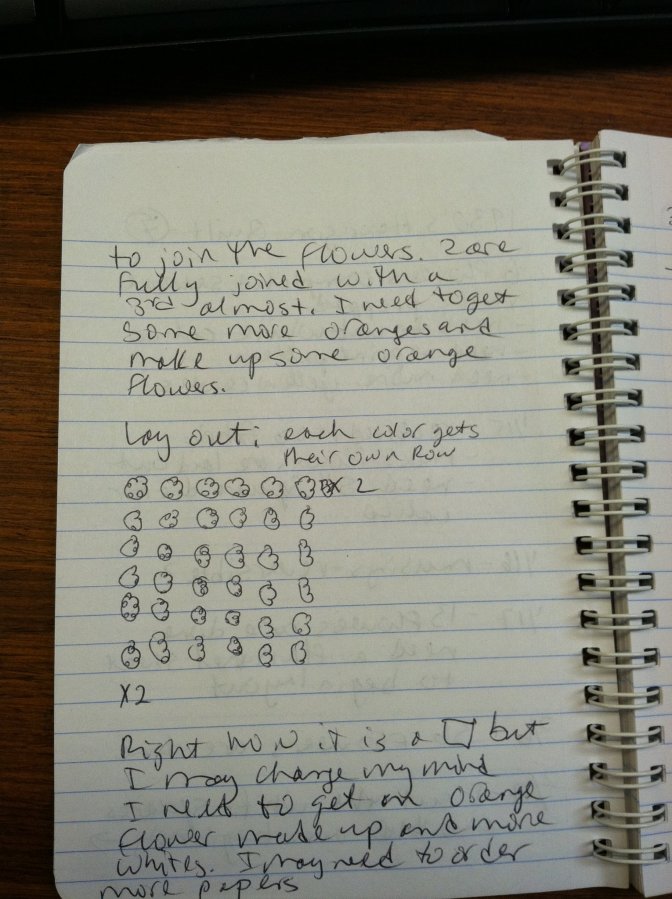 to join the flowers. 2 are
fully joined with a
3rd almost. I need to get
some more oranges and
make up some orange
flowers.
Lay out: each color gets
their own Row
X 2
X2
Right now it is a □ but
I may change my mind
I need to get an orange
flower made up and more
whites. I may need to order
more papers